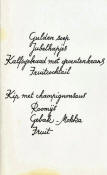 Gulden soep
Jubelhapjes
Kalfsgebraad met groentenkrans
Fruitcocktail
Kip met champignonsaus
Roomijs
Gebak - Mokka
Fruit